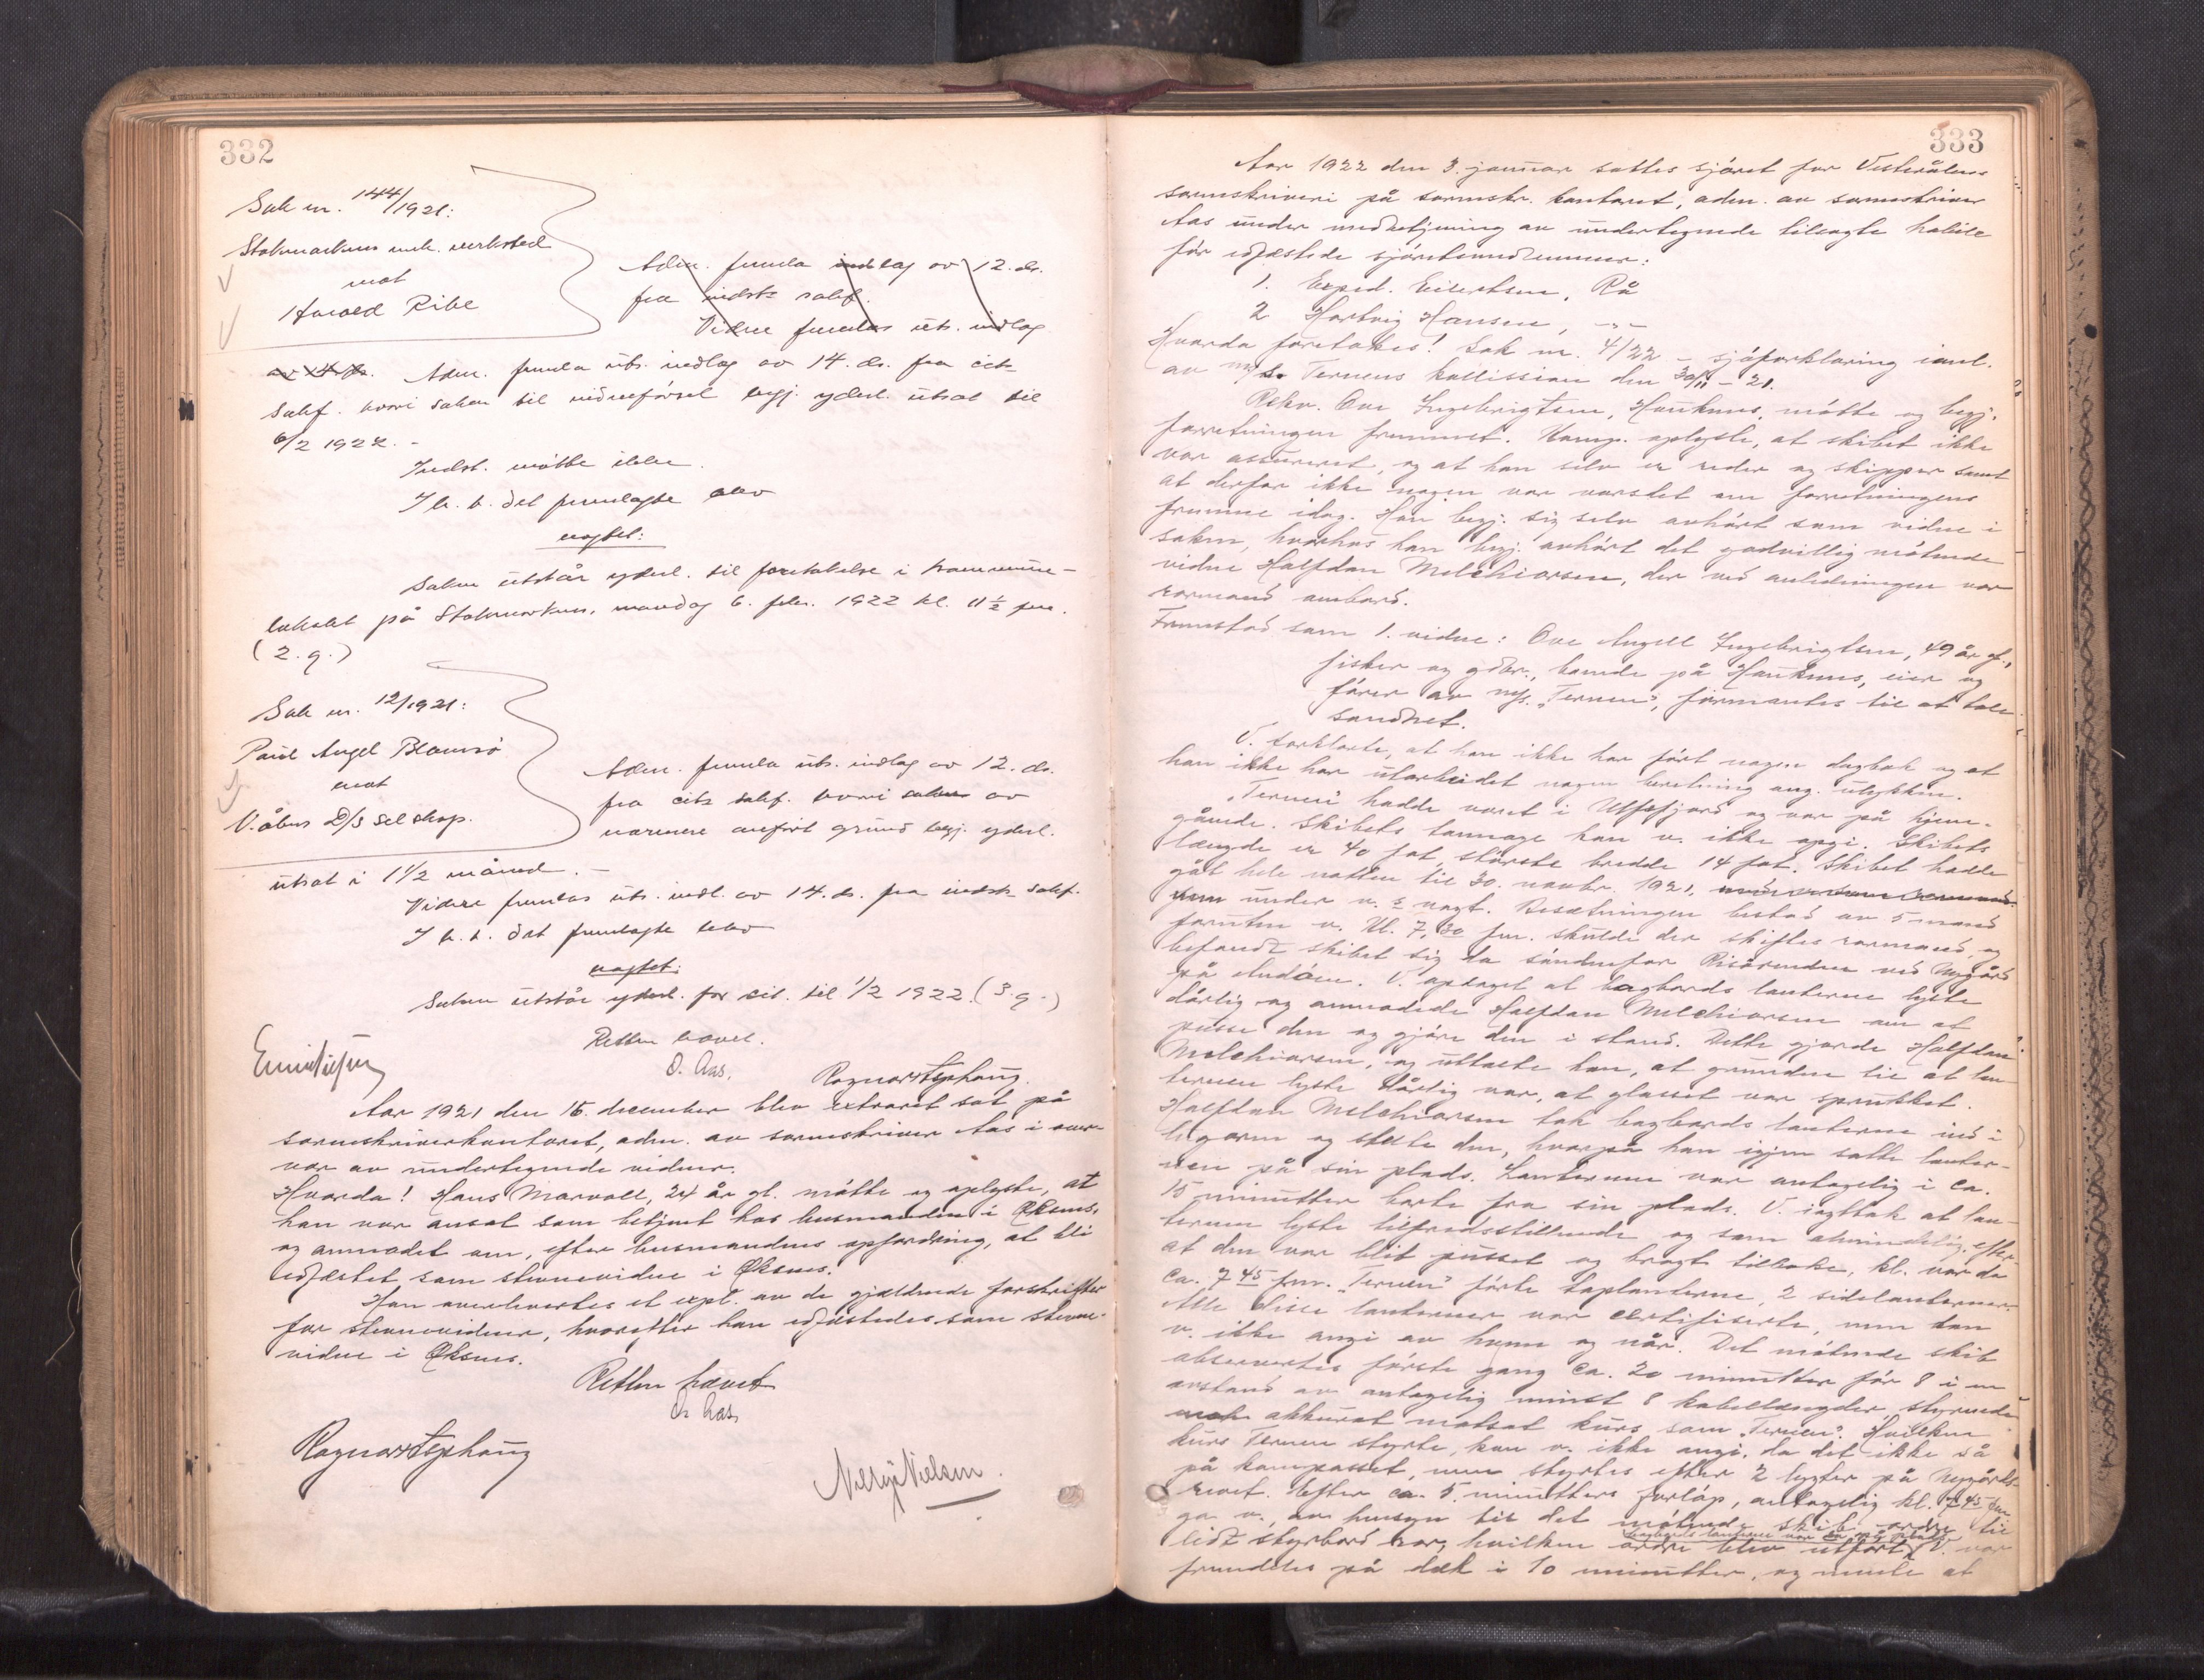 332
Sak nr. 144/1921:
Stokmarknes mek. verksted
mot
Harald Ribe
Adm. fremla indlæg av 12. ds.
fra indst. sakf.
Videre fremlas uts. indlæg
av 14. ds. Adm. fremla uts. indlæg av 14. ds. fra cit.
sakf. hvori saken til vidneførsel begj. yderl. utsat til
6/2 1922. -
Indst. møtte ikke.
I h. t. det fremlagte blev
vagtet:
Saken utstår yderl. til foretakelse i kommune-
lokalet på Stokmarknes, mandag 6. febr. 1922 kl. 11 1/2 fm.
(2. g.)
Sak nr. 12/1921:
Paul Angel Blomsø
mot
V.ålens D/S selskap.
Adm. fremla uts. indlæg av 12. ds.
fra cit. sakf. hvori saken av
nærmere anført grund begj. yderl.
utsat i 1 1/2 måned. -
Videre fremlas uts. indl. av 14. ds. fra indst. sakf.
I h. t. det fremlagte blev
vagtet:
Saken utstår yderl. for cit. til 1/2 1922. (3. g.)
Retten hævet.
O. Aas.
Ragnar Stephang.
Aar 1921 den 15. december blev extraret sat på
sorenskriverkontoret, adm. av sorenskriver Aas i over-
vær av undertegnede vidner.
Hvorda! Hans Marvoll, 24 år gl. møtte og oplyste, at
han var ansat som betjent hos lensmanden i Øksnes,
og anmodet om, efter lensmandens opfordring, at bli
edfæstet som stevnevidne i Øksnes.
Han overlevertes et expl. av de gjældende forskrifter
for stevnevidner, hvorefter han edfæstedes som stevne-
vidne i Øksnes.
Retten hævet
O. Aas
Ragnar Stephang
Nelly Nielsen.
333
Aar 1922 den 3. januar sattes sjøret for Vesterålens
sorenskriveri på sorenskr. kontoret, adm. av sorenskriver
Aas under medbetjening av undertegnede tilsagte habile
før edfæstede sjøretsmedlemmer:
1. Exped. Eilertsen, Rå
2 Hartvig Hansen, -"-
Hvorda foretokes! Sak nr. 4/22 - sjøforklaring i anl.
av m/s. Ternens kollission den 30/11 - 21.
Rekv. Ove Ingebrigtsen, Haukenes, møtte og begj.
forretningen fremmet. Komp. oplyste, at skibet ikke
var assureret, og at han selv er reder og skipper samt
at derfor ikke nogen var varslet om forretningens
fremme idag. Han begj. sig selv avhørt som vidne i
saken, hvorhos han begj. avhørt det godvillig møtende
vidne Halfdan Melchiorsen, der ved anledningen var
rormand ombord.
Fremstod som 1. vidne: Ove Angell Ingebrigtsen, 49 år gl.,
fisker og gdbr., boende på Haukenes, eier og
fører av m/s. "Ternen", formantes til at tale
sandhet.
V. forklarte, at han ikke har ført nogen dagbok og at
han ikke har utarbeidet nogen beretning ang. ulykken.
"Ternen" hadde været i Ulfsfjord og var på hjem-
gående. Skibets tonnage kan v. ikke opgi. Skibets
længde er 40 fot, største bredde 14 fot. Skibet hadde
gåt hele natten til 30. novbr. 1921,
under v.s vagt. Besætningen bestod av 5 mand
foruten v. Kl. 7,30 fm. skulde der skiftes rormand, og
befandt skibet sig da søndenfor Risørenden ved Nygård
på Andøen. V. opdaget at bagbords lanterne lyste
dårlig og anmodede Halfdan Melchiorsen om at
pusse den og gjøre den i stand. Dette gjorde Halfdan
Melchiorsen, og uttalte han, at grunden til at lan-
ternen lyste dårlig var, at glasset var sprukket.
Halfdan Melchiorsen tok bagbords lanterne ind i
lugaren og stelte den, hvorpå han igjen satte lanter-
nen på sin plads. Lanternen var antagelig i ca.
15 minutter borte fra sin plads. V. iagttok at lan-
ternen lyste tilfredsstillende og som almindelig, efter
at den var blit pusset og bragt tilbake, kl. var da
ca. 7 45 fm. "Ternen" førte toplanterne, 2 sidelanterner.
Alle disse lanterner var certifiserte, men kan
v. ikke angi av hvem og når. Det møtende skib
observertes første gang ca. 20 minutter før 8 i en
avstand av antagelig minst 8 kabellængder, styrende
akkurat motsat kurs som "Ternen". Hvilken
kurs Ternen styrte, kan v. ikke angi, da det ikke så
på kompasset, men styrtes efter 2 lygter på Nygårds-
revet. Efter ca. 5 minutters forløp, antagelig kl. 7 45 fm
ga v., av hensyn til det møtende skib ordre til
bagbords lanterne var da på plads
lidt styrbord ror, hvilken ordre blev utført. V. var
fremdeles på dæk i 10 minutter, og mente at